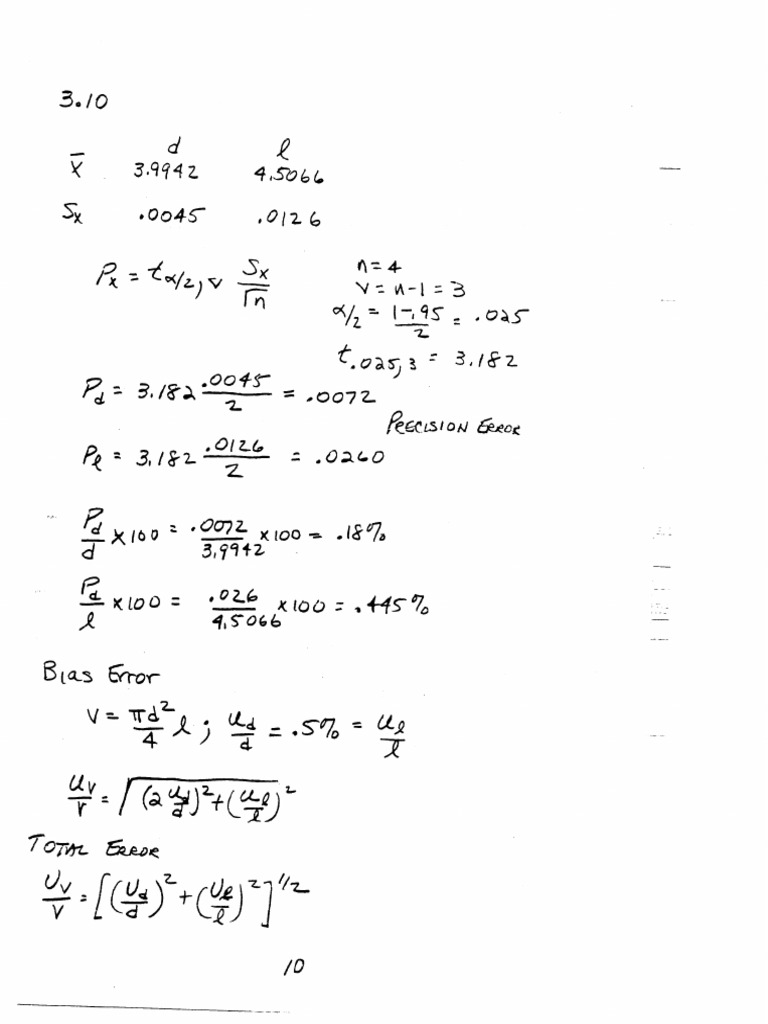 3.10
d l
x̄ 3.9942 4.5066
Sx .0045 .0126
Px = t α/2, v Sx/√n n=4
v = n-1 = 3
α/2 = 1-.95/2 = .025
t.025,3 = 3.182
Pd = 3.182 .0045/2 = .0072
PRECISION ERROR
Pl = 3.182 .0126/2 = .0260
Pd/d x100 = .0072/3.9942 x100 = .18%
Pd/l x100 = .026/4.5066 x100 = .445%
Bias Error
V = πd²/4 l ; ud/d = .5% = ul/l
uv/v = √(2 ud/d)²+(ul/l)²
TOTAL ERROR
Uv/V = [(Ud/d)² + (Ul/l)²]^1/2
10